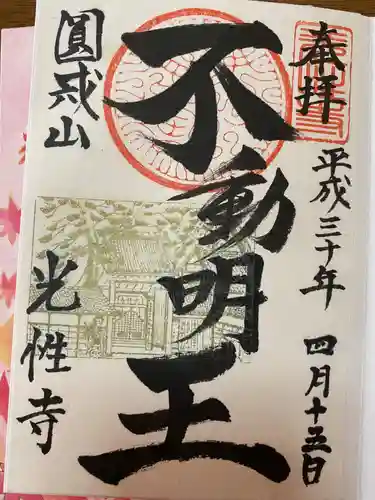 奉拝
平成三十年 四月十五日
不動明王
圓戒山
光性寺